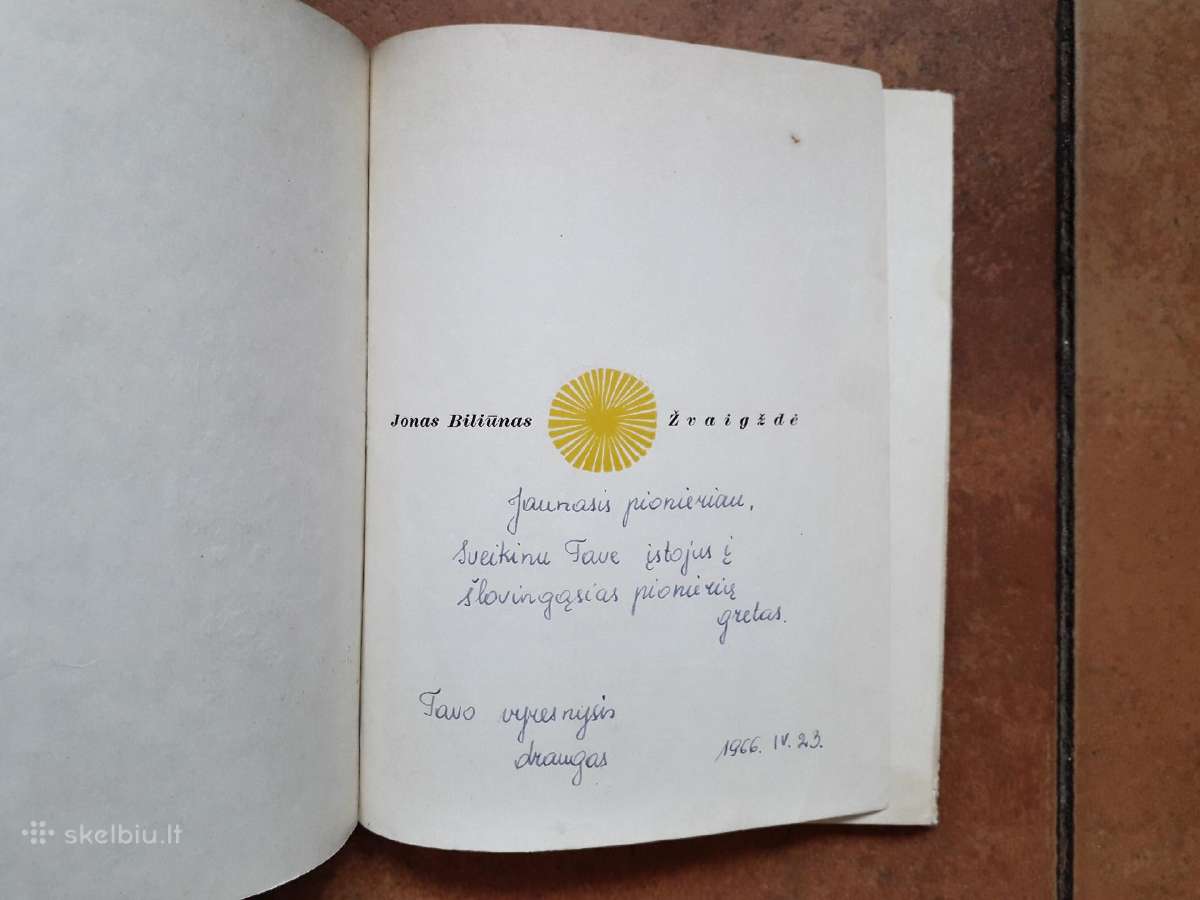 Jonas Biliūnas Žvaigždė
Jaunasis pionieriau,
Sveikinu Tave įstojus į
šlovingąsias pionierių
gretas.
Tavo vyresnysis
draugas
1966. IV. 23.
skelbiu.lt